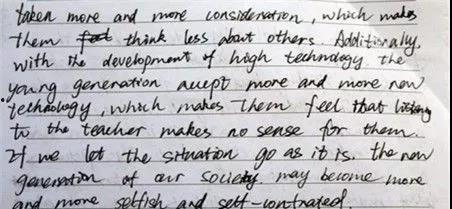 taken more and more consideration, which makes
them feel think less about others. Additionally,
with the development of high technology, the
young generation accept more and more new
technology, which makes them feel that listening
to the teacher makes no sense for them.
If we let the situation go as it is, the new
generation of our society may become more
and more selfish and self-contrated.